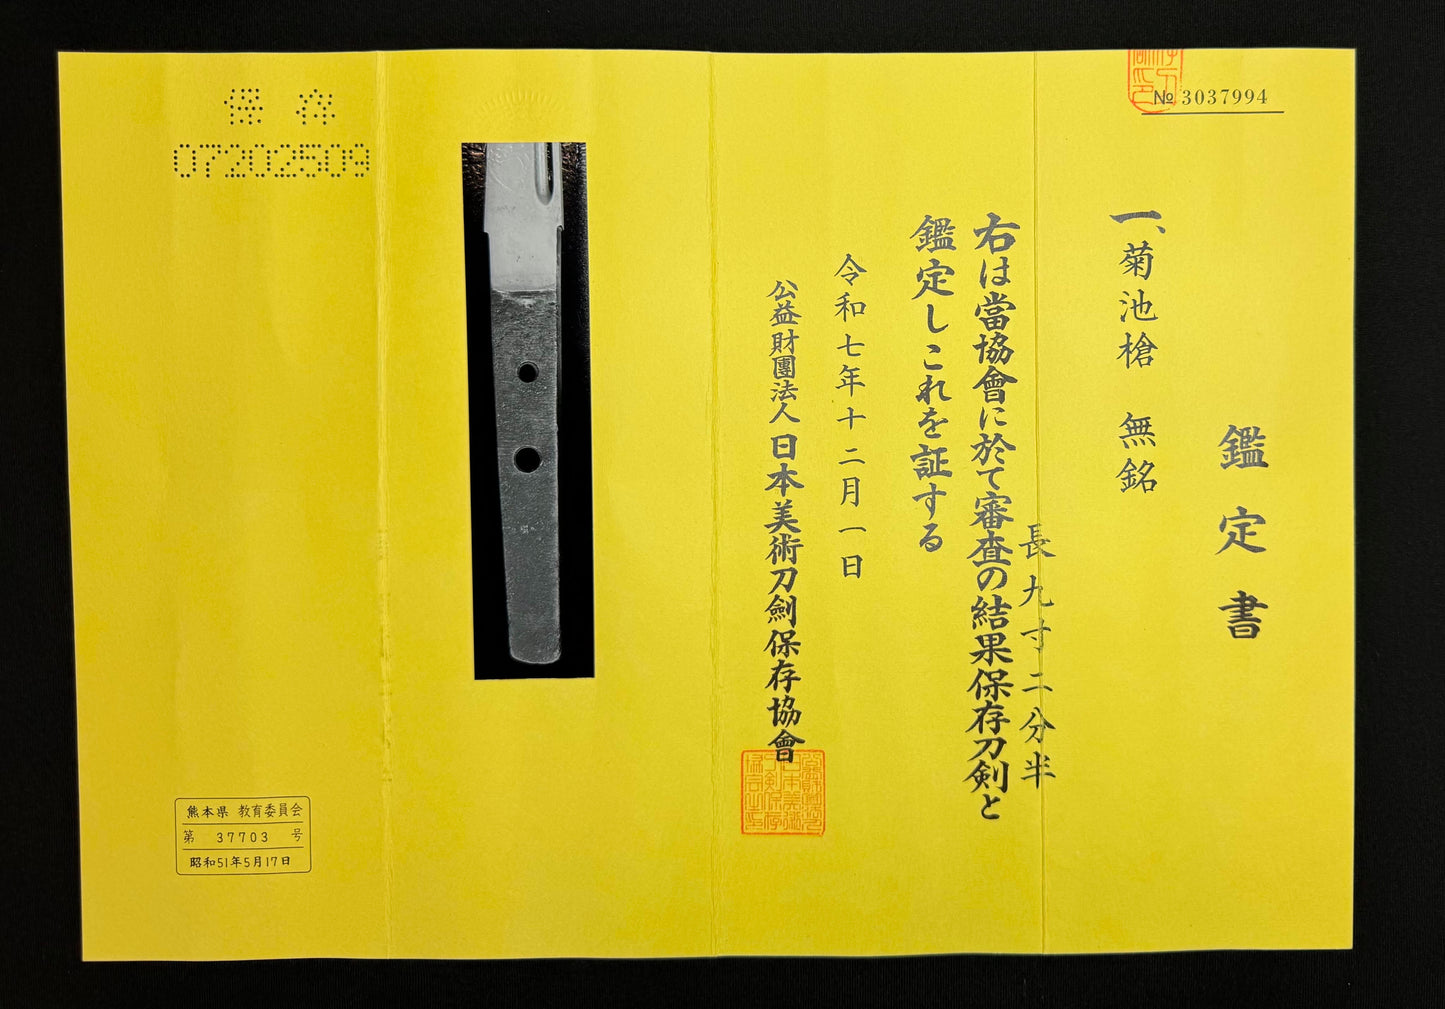 № 3037994
鑑定書
一、菊池槍 無銘
長九寸二分半
右は當協會に於て審査の結果保存刀剣と
鑑定しこれを証する
令和七年十二月一日
公益財團法人 日本美術刀劍保存協會
保存
07202509
熊本県 教育委員会
第 37703 号
昭和51年5月17日